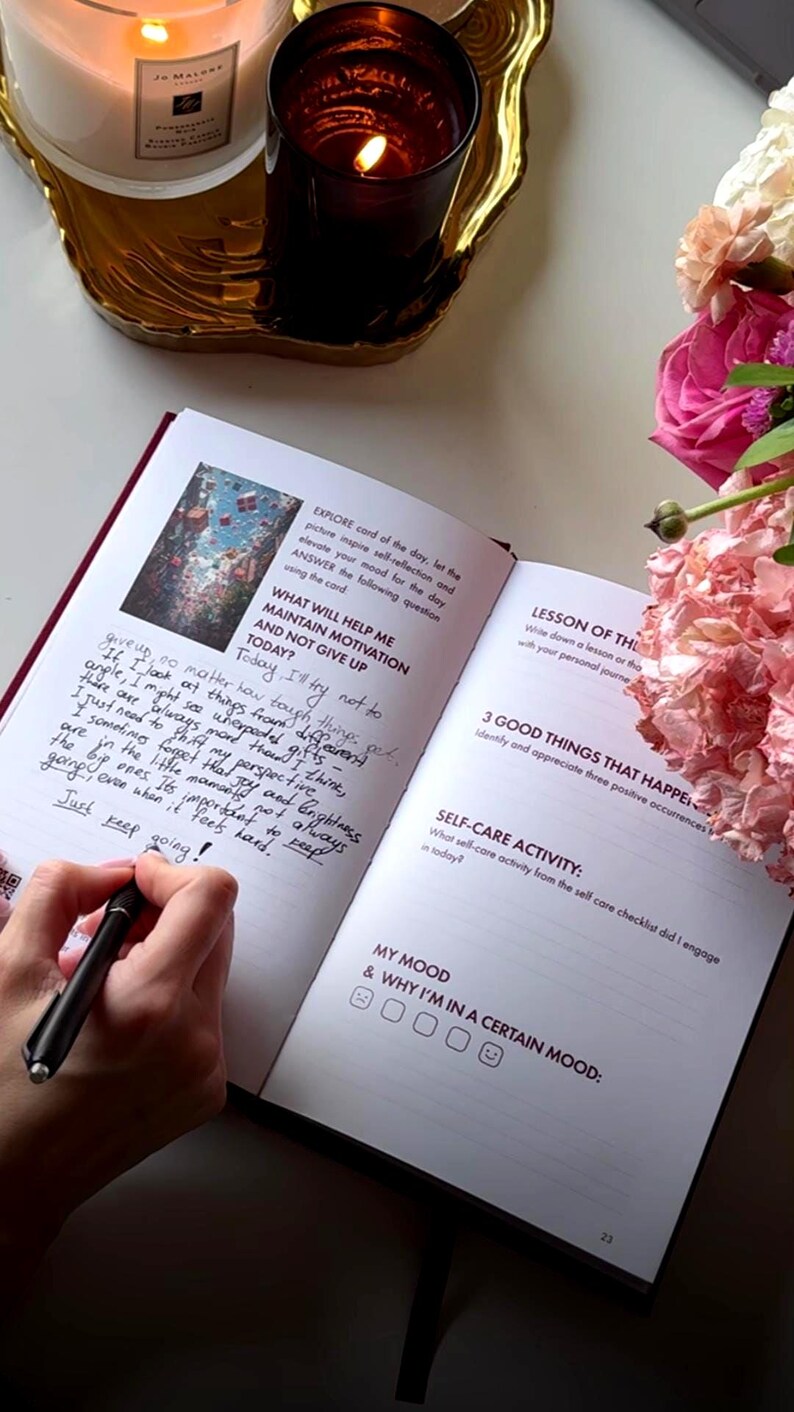 JO MALONE
LONDON
POMEGRANATE
NOIR
SCENTED CANDLE
BOUGIE PARFUMÉE
EXPLORE card of the day, let the
picture inspire self-reflection and
elevate your mood for the day.
ANSWER the following question
using the card.
WHAT WILL HELP ME
MAINTAIN MOTIVATION
AND NOT GIVE UP
TODAY?
Today, I'll try not to
give up no matter how tough things get.
If I look at things from different
angle, I might see unexpected gifts –
there are always more than I think,
I just need to shift my perspective.
I sometimes forget that joy and brightness
are in the little moments, not always
the big ones. It's important to keep
going, even when it feels hard.
Just keep going!
LESSON OF THE
Write down a lesson or
with your personal
3 GOOD THINGS THAT
Identify and appreciate three positive occurrences
SELF-CARE ACTIVITY:
What self-care activity from the self care checklist did I engage
in today?
MY MOOD
& WHY I'M IN A CERTAIN MOOD:
23